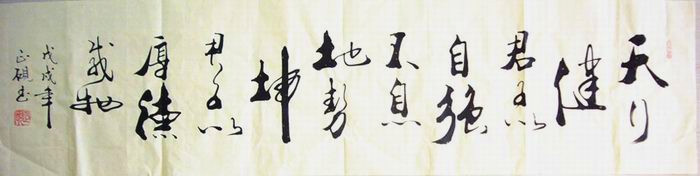 天行
健
君子以
自强
不息
地势
坤
君子以
厚德
载物
戊戌年
正砚书